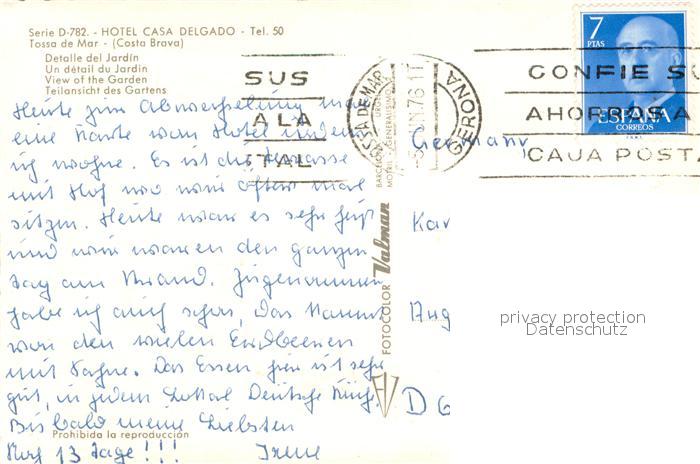 Serie D-782. - HOTEL CASA DELGADO - Tel. 50
Tossa de Mar - (Costa Brava)
Detalle del Jardín
Un détail du Jardin
View of the Garden
Teilansicht des Gartens
7
PTAS
ESPAÑA
CORREOS
SUS
ALA
TAL
SSA DE MAR
GERONA
CONFIE SU
AHORROS A
CAJA POST
Heute zur Abwechslung mal
eine Karte vom Hotel in dem
ich wohne. Es ist die Terrasse
mit Hof wo wir öfters mal
sitzen. Heute war es sehr
und wir waren den ganzen
Tag am Strand. Zugenommen
habe ich auch schon, das kommt
von den vielen Erdbeeren
mit Sahne. Das Essen hier ist sehr
gut, in jedem Lokal Deutsche Küche.
Bis bald meine Liebsten
Noch 13 Tage!!! Irene
Prohibida la reproducción
FOTOCOLOR Valman
Germany
Kar
Aug
D 6
privacy protection
Datenschutz